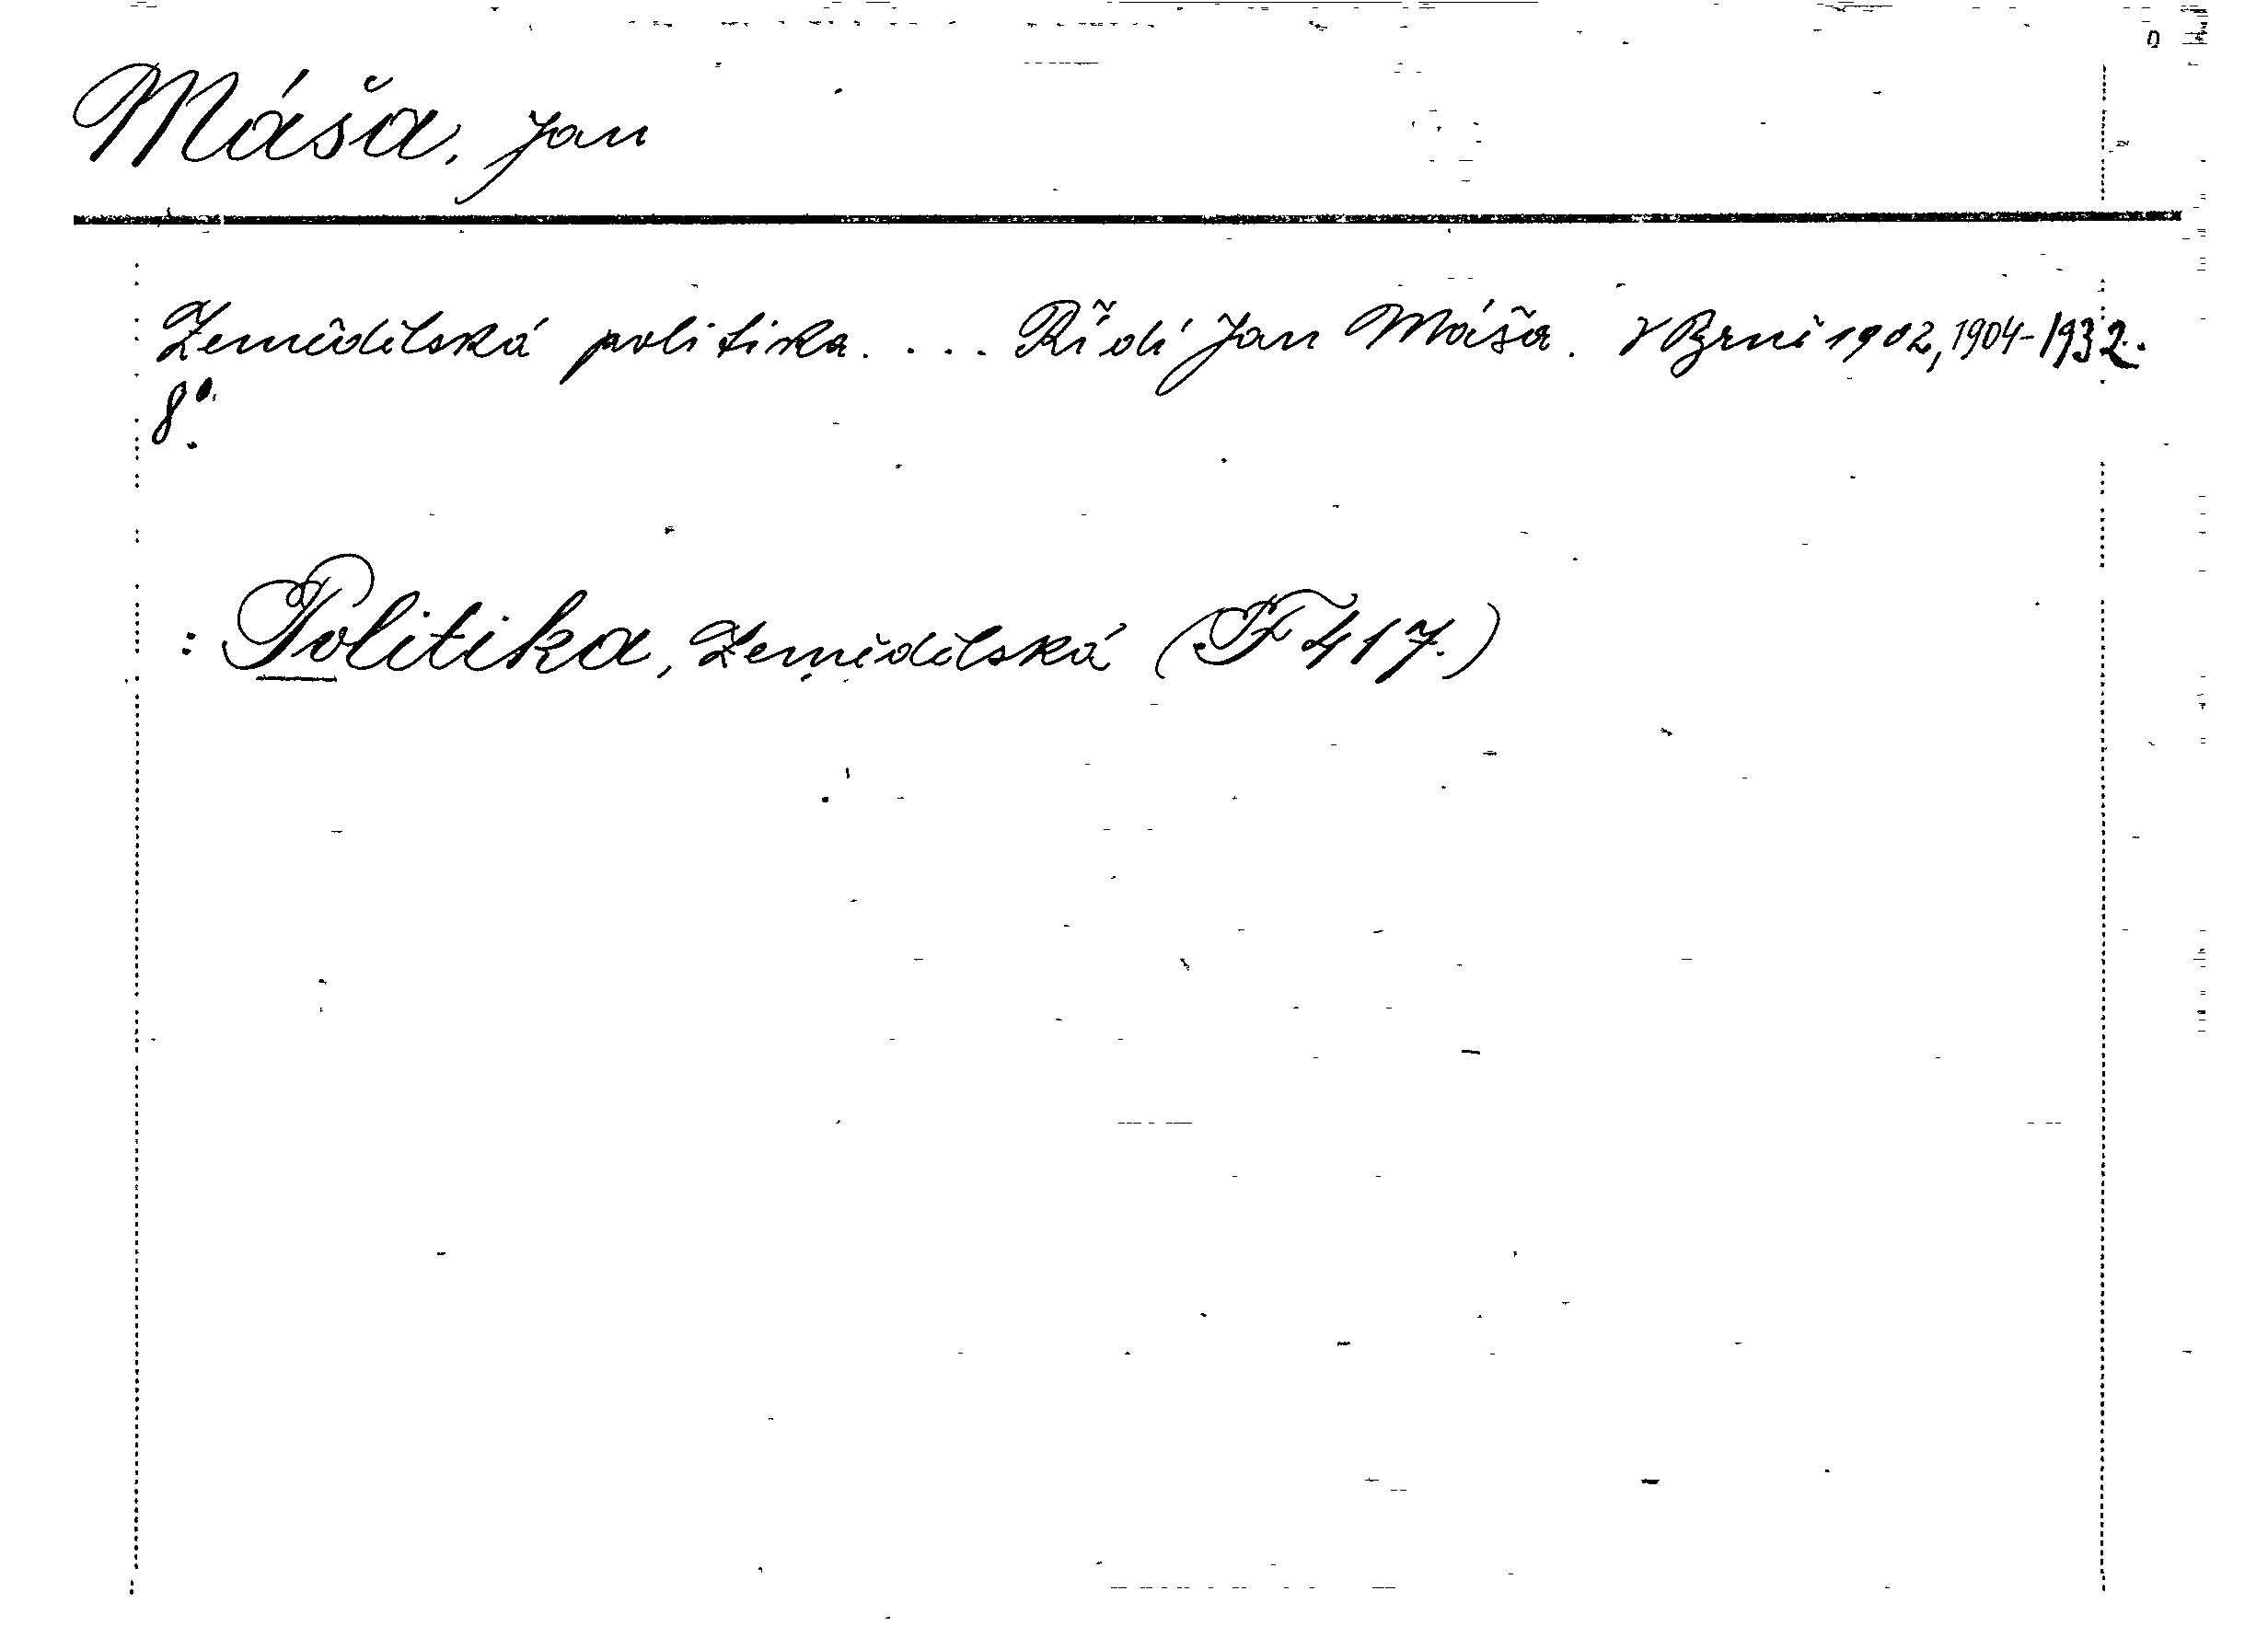 Máša, Jan
Zemědělská politika. . . . Řídí Jan Máša. V Brně 1902, 1904-1932.
8°.
: Politika, Zemědělská (F 417.)